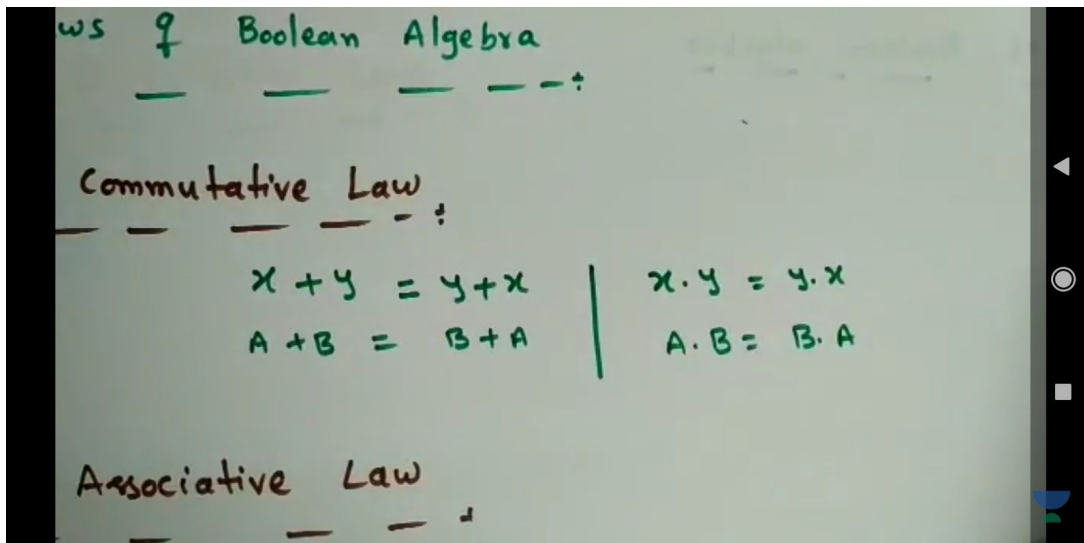 ws of Boolean Algebra
Commutative Law :
x + y = y + x | x . y = y . x
A + B = B + A | A . B = B . A
Associative Law